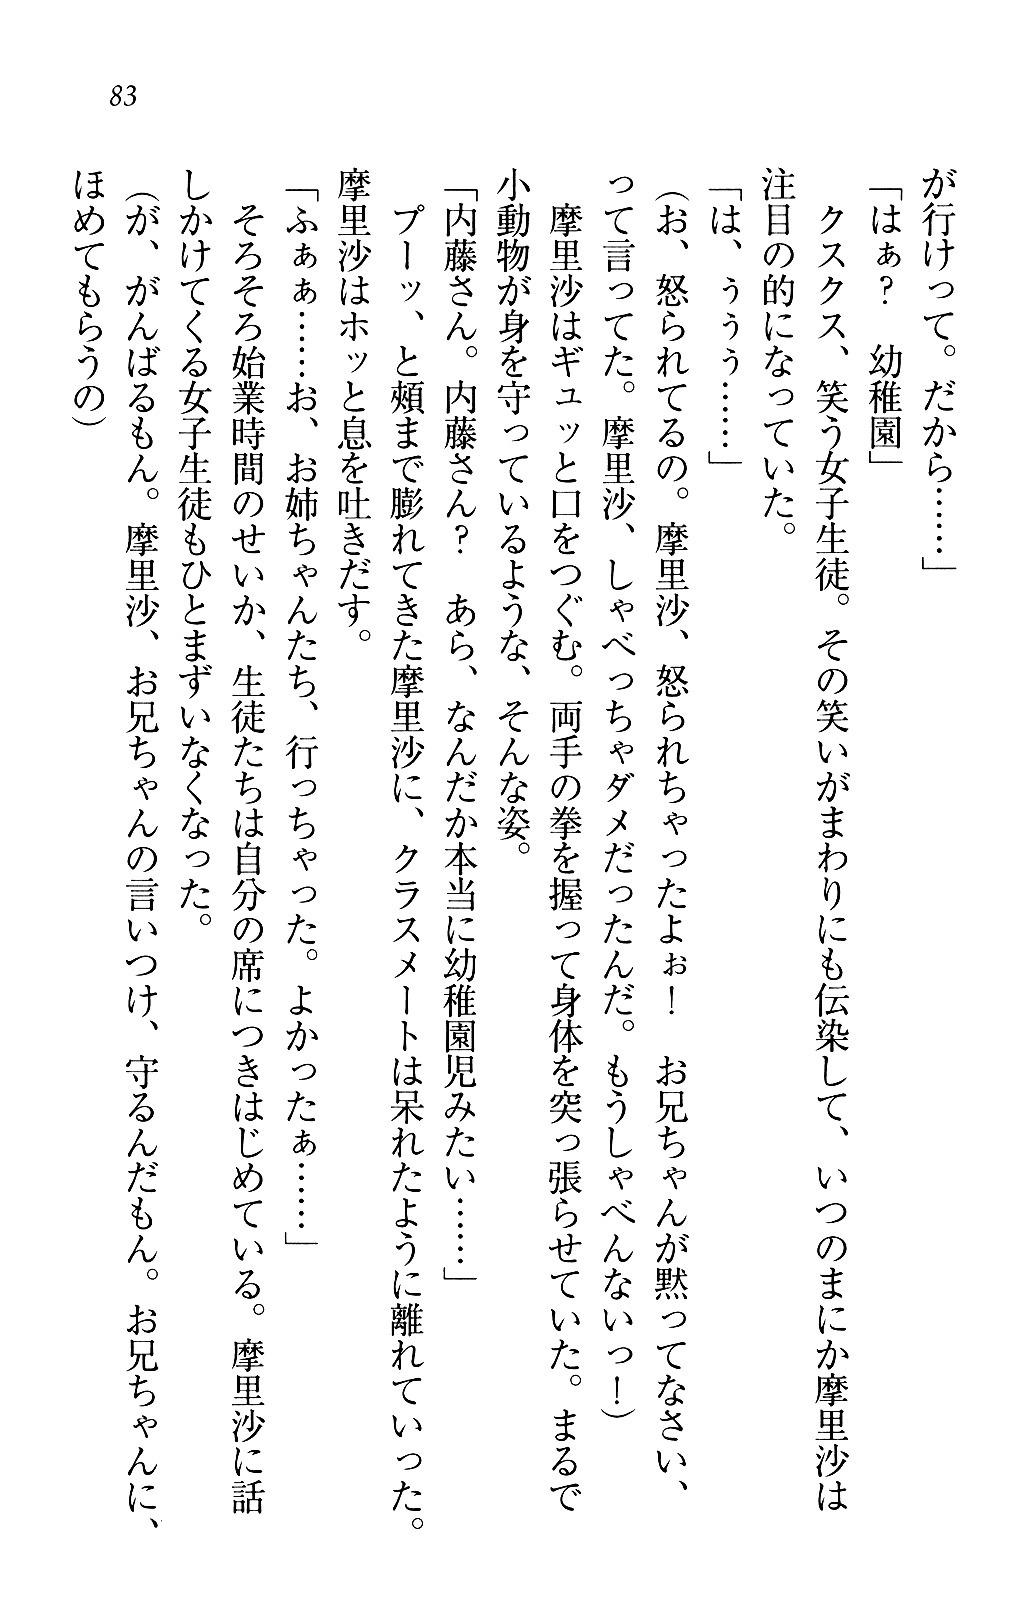 83
が行けって。だから……」
「はぁ？　幼稚園」
クスクス、笑う女子生徒。その笑いがまわりにも伝染して、いつのまにか摩里沙は
注目の的になっていた。
「は、ぅぅぅ……」
（お、怒られてるの。摩里沙、怒られちゃったよぉ！　お兄ちゃんが黙ってなさい、
って言ってた。摩里沙、しゃべっちゃダメだったんだ。もうしゃべんないっ！）
摩里沙はギュッと口をつぐむ。両手の拳を握って身体を突っ張らせていた。まるで
小動物が身を守っているような、そんな姿。
「内藤さん。内藤さん？　あら、なんだか本当に幼稚園児みたい……」
プーッ、と頰まで膨れてきた摩里沙に、クラスメートは呆れたように離れていった。
摩里沙はホッと息を吐きだす。
「ふぁぁ……お、お姉ちゃんたち、行っちゃった。よかったぁ……」
そろそろ始業時間のせいか、生徒たちは自分の席につきはじめている。摩里沙に話
しかけてくる女子生徒もひとまずいなくなった。
（が、がんばるもん。摩里沙、お兄ちゃんの言いつけ、守るんだもん。お兄ちゃんに、
ほめてもらうの）